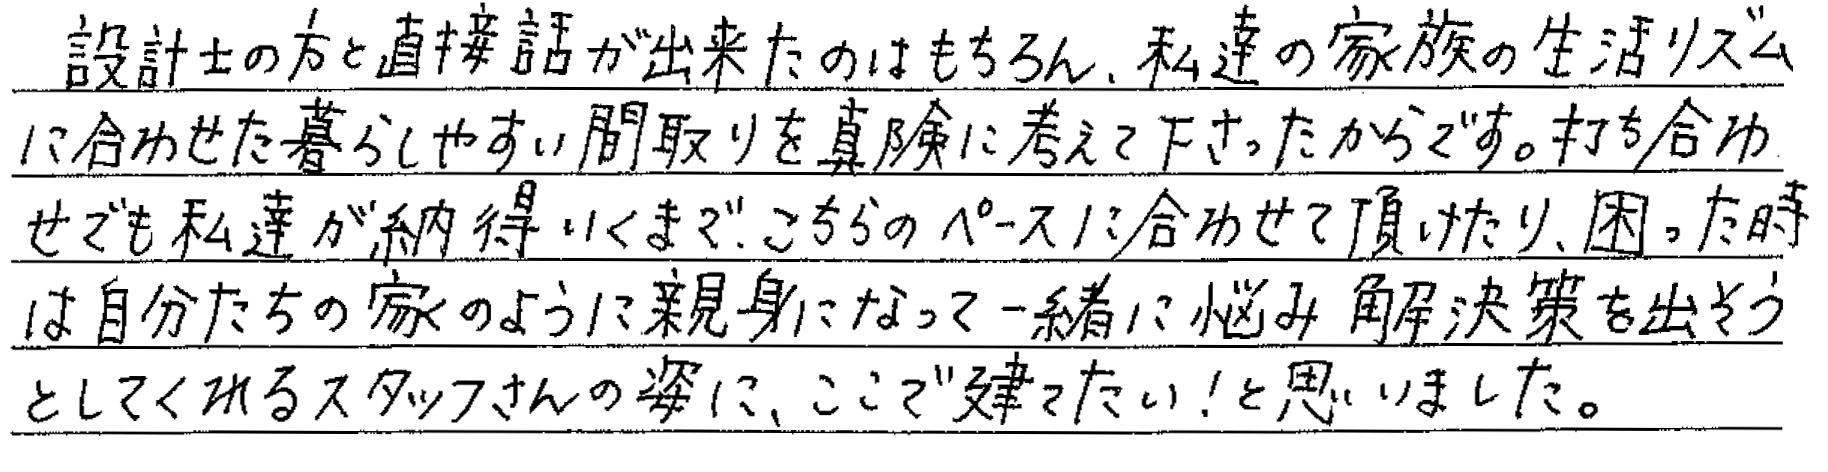 設計士の方と直接話が出来たのはもちろん、私達の家族の生活リズム
に合わせた暮らしやすい間取りを真険に考えて下さったからです。打ち合わ
せでも私達が納得いくまで、こちらのペースに合わせて頂けたり、困った時
は自分たちの家のように親身になって一緒に悩み解決策を出そう
としてくれるスタッフさんの姿に、ここで建てたい！と思いました。